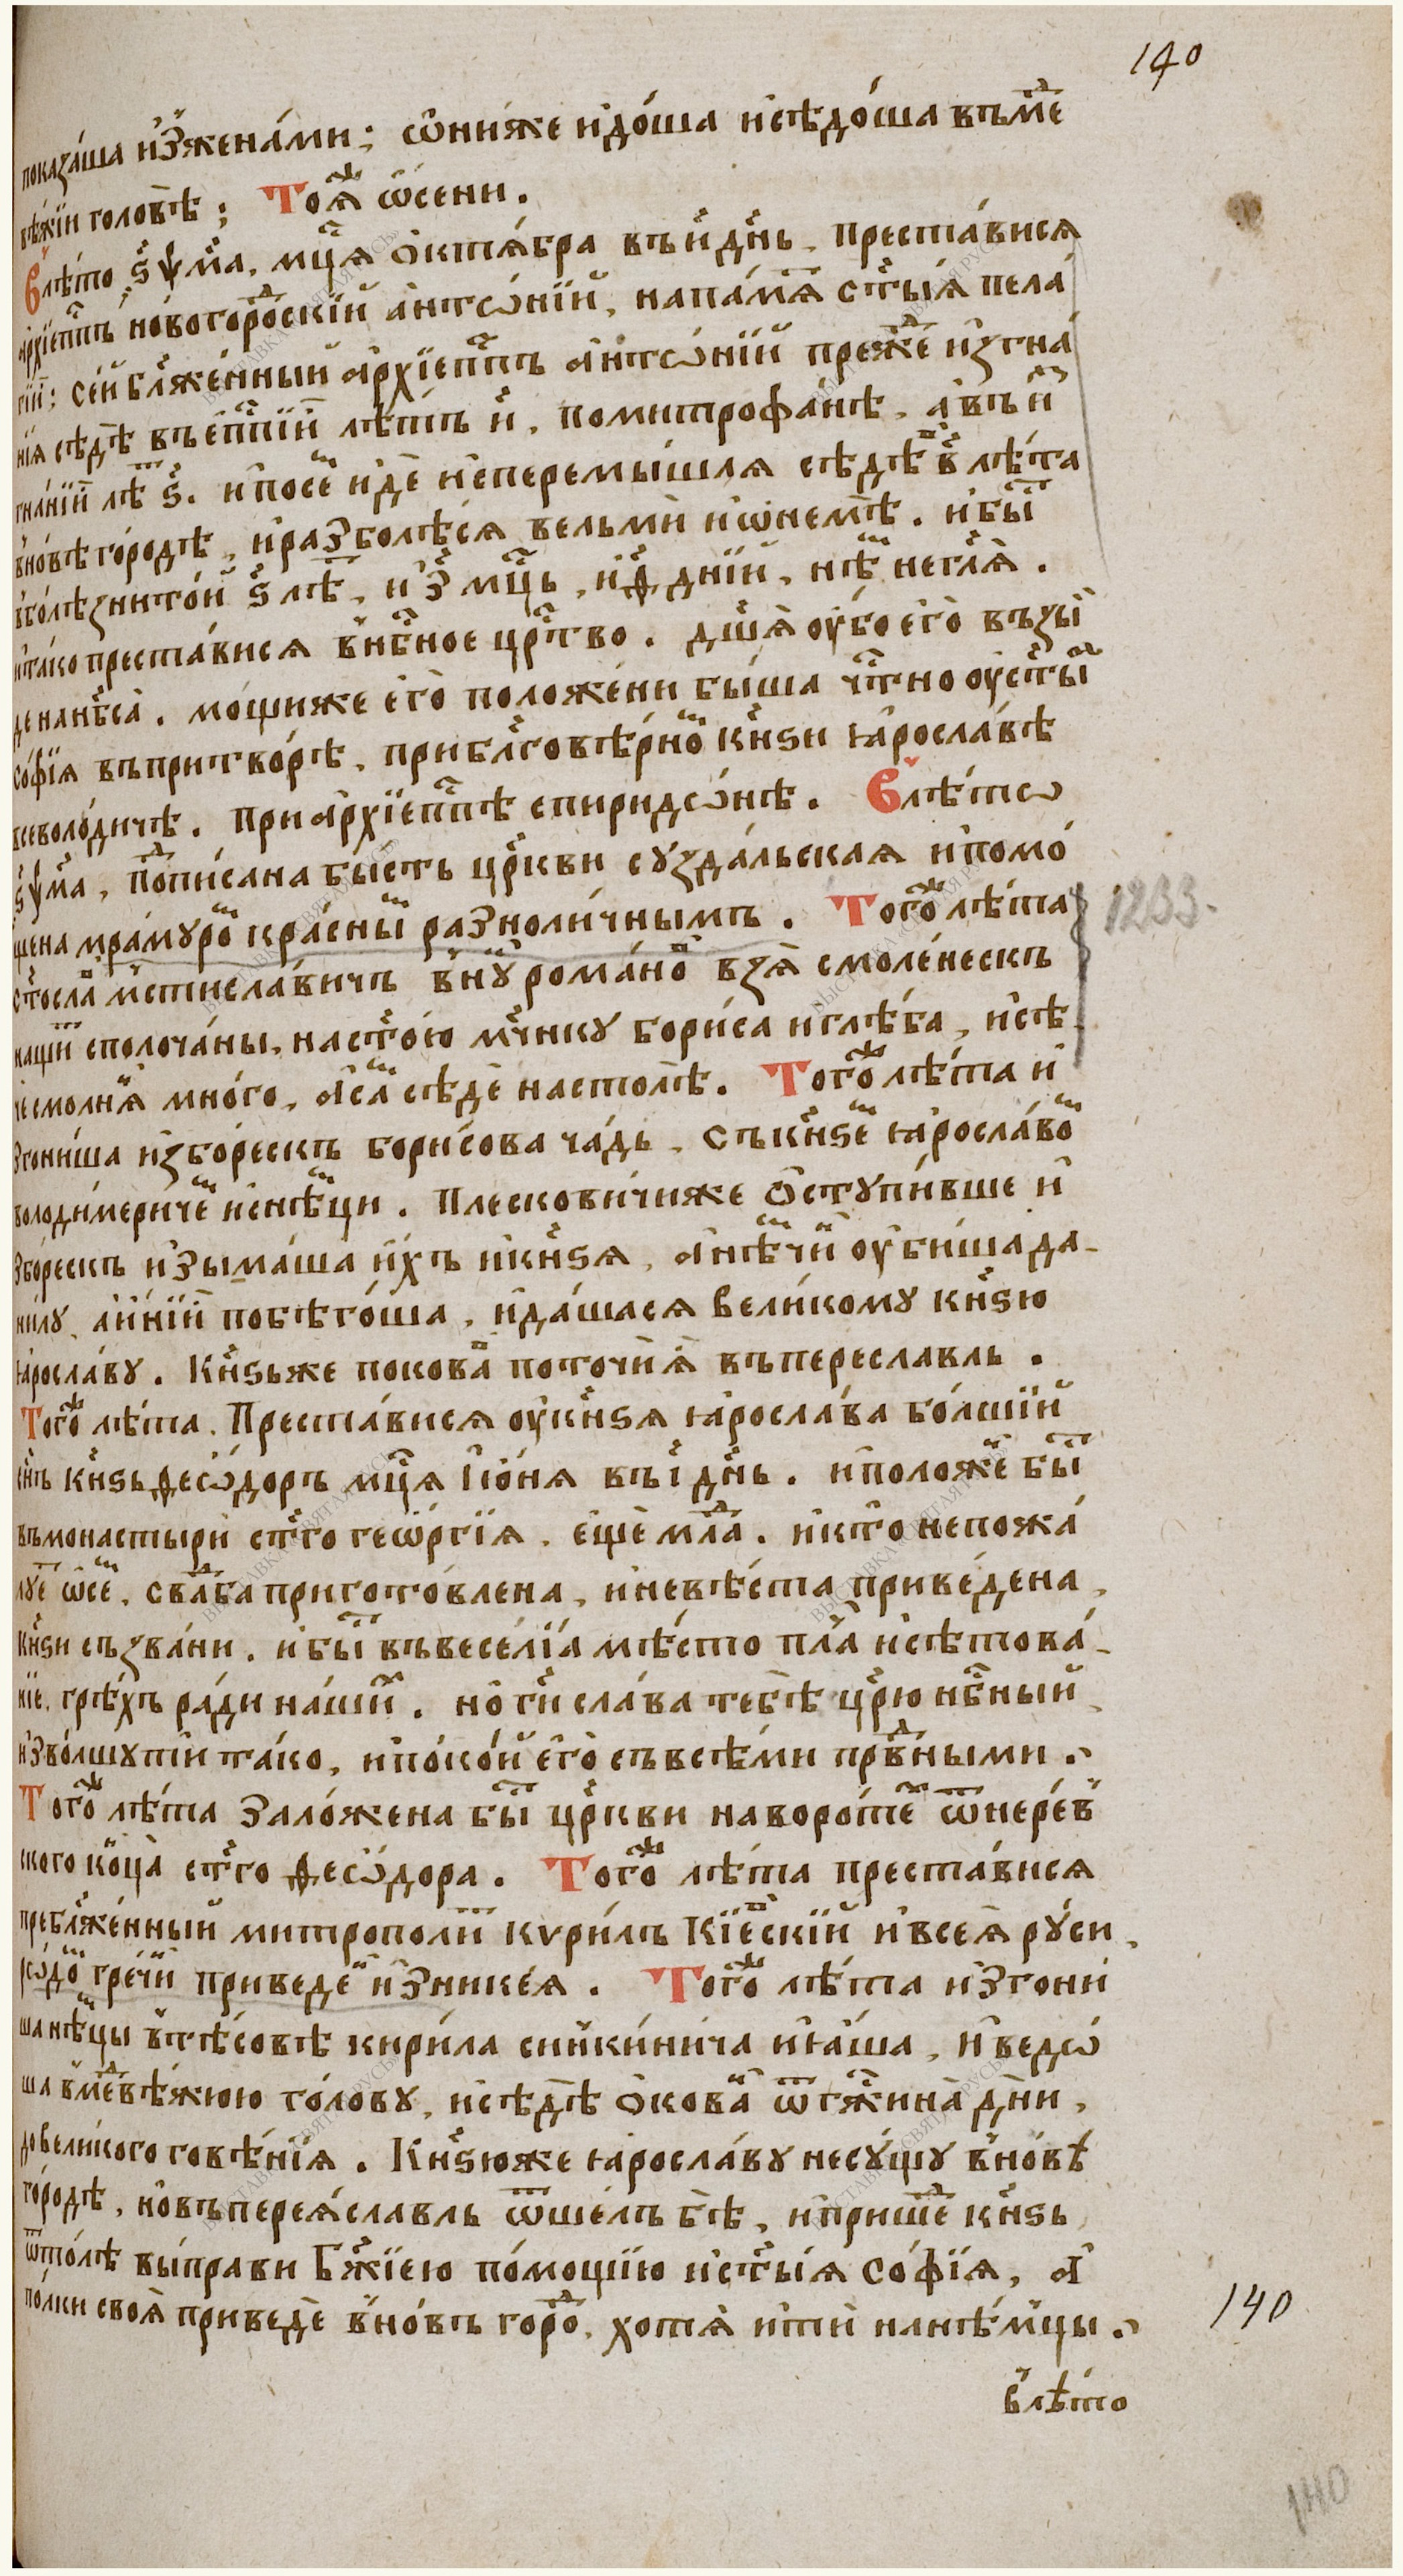 140
показа́ша и҆зженами; ѡ҆ни́же и҆до́ша и҆сѣдо́ша въмеⷣ
вѣжїи головѣ; Тоѧ̀ⷤ ѡ҆сени.
Влѣто ҂ѕ҃ѱм҃а, мцⷭ҇а ѻ҆ктѧ́брѧ въи҃ дн҃ь, преста́висѧ
а҆рхїепⷭ҇пъ новогороⷣскїй а҆нтѡ́нїй, напа́мѧⷮ ст҃ы́ѧ пела́
гїи; се́й бл҃же́нный а҆рхїепⷭ҇пъ а҆нтѡ́нїй преⷤⷣе и҆згна́
нїѧ сѣдѣ̀ въепⷭ҇пїи лѣтъ и҃, помитрофа́нѣ, а҆въи
гна́нїи лѣⷮ ѕ҃. и҆посеⷨ и҆дѐ и҆сперемы́шлѧ сѣдѣ̀ в҃ лѣ́та
вно́вѣ го́родѣ, и҆разболѣ́сѧ вельмѝ и҆ѡ҆немѣ̀. и҆быⷭ҇
вболѣ́зни то́й ѕ҃ лѣⷮ, и҆ з҃ мцⷭ҇ь, и҆ѳ҃ дні́й, нѣⷨ неглѧ̀.
и҆та́ко преста́висѧ внбⷭ҇ное црⷭ҇тво. дш҃ѧ̀ ᲂу҆́бо е҆го̀ възы́
де нанб҃са̀. мо́щиже е҆го̀ положе́ни бы́ша чтⷭ҇но ᲂу҆ст҃ы́ѧ
софі́ѧ въпритво́рѣ, прибл҃говѣ́рноⷨ кн҃ѕи ꙗ҆росла́вѣ
всеволо́дичѣ. Приа҆рхїепⷭ҇пѣ спиридѡ́нѣ. Влѣ́тѡ
҂ѕѱм҃а, поⷣпи́сана бы́сть цр҃кви сꙋзда́льскаѧ и҆помо́
щена мра́мꙋроⷨ кра́сныⷨ разноли́чнымъ. Тогоⷤ лѣ́та
ст҃осла́ⷡ мстисла́вичъ внꙋⷦ рома́ноⷡ взѧ̀ смоле́нескъ
нащиⷮ сполоча́ны, наст҃о́ю мч҃нкꙋ бори́са и҆глѣ́ба, и҆сѣ
че смолнѧⷩ мно́го, а҆са́ⷨ сѣ́де настолѣ̀. Тогоⷤ лѣ́та и҆
згони́ша и҆збо́рескъ бори́сова ча́дь, съкн҃ѕеⷨ ꙗ҆росла́воⷨ
володи́меричеⷨ и҆снѣⷨци. Плескови́чиже ѻ҆стꙋпи́вше и҆
збо́рескъ и҆зыма́ша и҆́хъ и҆кн҃ѕѧ, а҆нѣⷨчиⷩ ᲂу҆би́ша да-
ни́лꙋ, а҆и҆ні́и побѣго́ша, и҆да́шасѧ вели́комꙋ кн҃ѕю
ꙗ҆росла́вꙋ. Кн҃ѕьже поковаⷡ поточѝ ѧ҆̀ въпереславль.
Тогоⷤ лѣ́та. Преста́висѧ ᲂу҆кн҃ѕѧ ꙗ҆росла́ва бо́лшїй
сн҃ъ кн҃ѕь ѳео́дѡръ мцⷭ҇а і҆ю́нѧ въі҃ дн҃ь. и҆положеⷩ быⷭ҇
въмонастырѝ ст҃го гео́ргїѧ. е҆щѐ млⷣа. и҆кто̀ непожа́
лꙋеⷮ ѡ҆сеⷨ, сваⷣба пригото́влена, и҆невѣ́ста приве́дена,
кн҃ѕи съзва́ни. и҆быⷭ҇ въвесе́лїа мѣ́сто плаⷱ и҆сѣтова́-
нїе, грѣ́хъ ра́ди на́шиⷯ. но гдⷭ҇и сла́ва тебѣ̀ цр҃ю нбⷭ҇ный
и҆зво́лшꙋти та́ко, и҆поко́й е҆го̀ съвсѣ́ми првⷣными.
Тогоⷤ лѣ́та зало́жена быⷭ҇ цр҃кви наворо́теⷯ ѿнере́в
ского коⷩца̀ ст҃го ѳео́дѡра. Тогоⷤ лѣ́та преста́висѧ
пребл҃же́нный митрополиⷮ кѵри́лъ Кїеⷡскїй и҆всеѧ̀ рꙋ́си,
ро́доⷨ гре́чиⷩ приведеⷩ и҆знике́ѧ. Тогоⷤ лѣ́та и҆згони́
ша нѣⷨцы втѣ́совѣ кири́ла синки́нича и҆ꙗ҆́ша, и҆ведо́
ша вмеⷣвѣ́жюю го́ловꙋ, и҆сѣдѣ̀ ѻ҆коваⷩ ѿгжⷭ҇ина̀ дн҃и,
довели́кого говѣ́нїѧ. Кн҃ѕюже ꙗ҆росла́вꙋ несꙋ́щꙋ вно́вѣ
го́родѣ, новъпереѧ́славль ѿше́лъ бѣ, и҆прише́ⷣ кн҃ѕь
ѿто́лѣ вы́прави Бж҃їею по́мощїю и҆ст҃ы́ѧ Софі́ѧ, А҆
полки своѧ̀ приведѐ вно́въ гороⷣ, хотѧ̀ и҆тѝ нанѣ́мцы.
влѣ́то
1233.
140
140